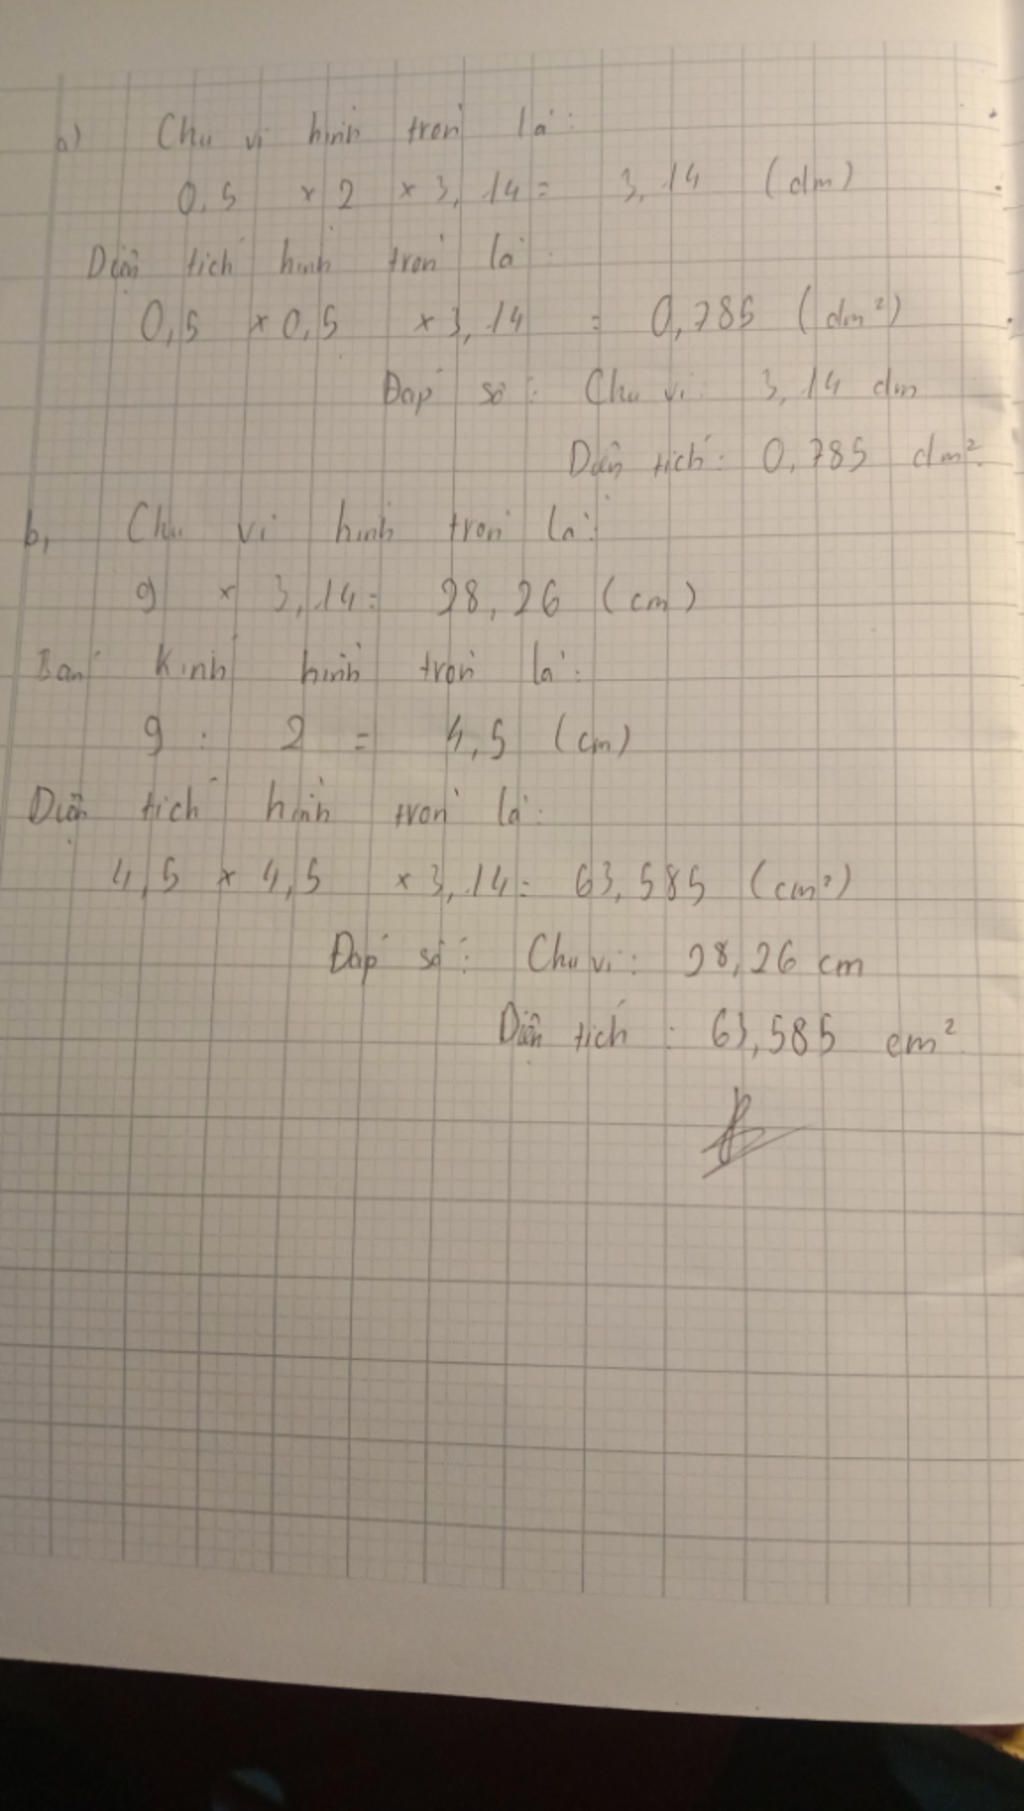 a) Chu vi hình tròn là:
0,5 × 2 × 3,14 = 3,14 (dm)
Diện tích hình tròn là:
0,5 × 0,5 × 3,14 = 0,785 (dm²)
Đáp số: Chu vi: 3,14 dm
Diện tích: 0,785 dm².
b, Chu vi hình tròn là:
9 × 3,14 = 28,26 (cm)
Bán kính hình tròn là:
9 : 2 = 4,5 (cm)
Diện tích hình tròn là:
4,5 × 4,5 × 3,14 = 63,585 (cm²)
Đáp số: Chu vi: 28,26 cm
Diện tích: 63,585 cm²